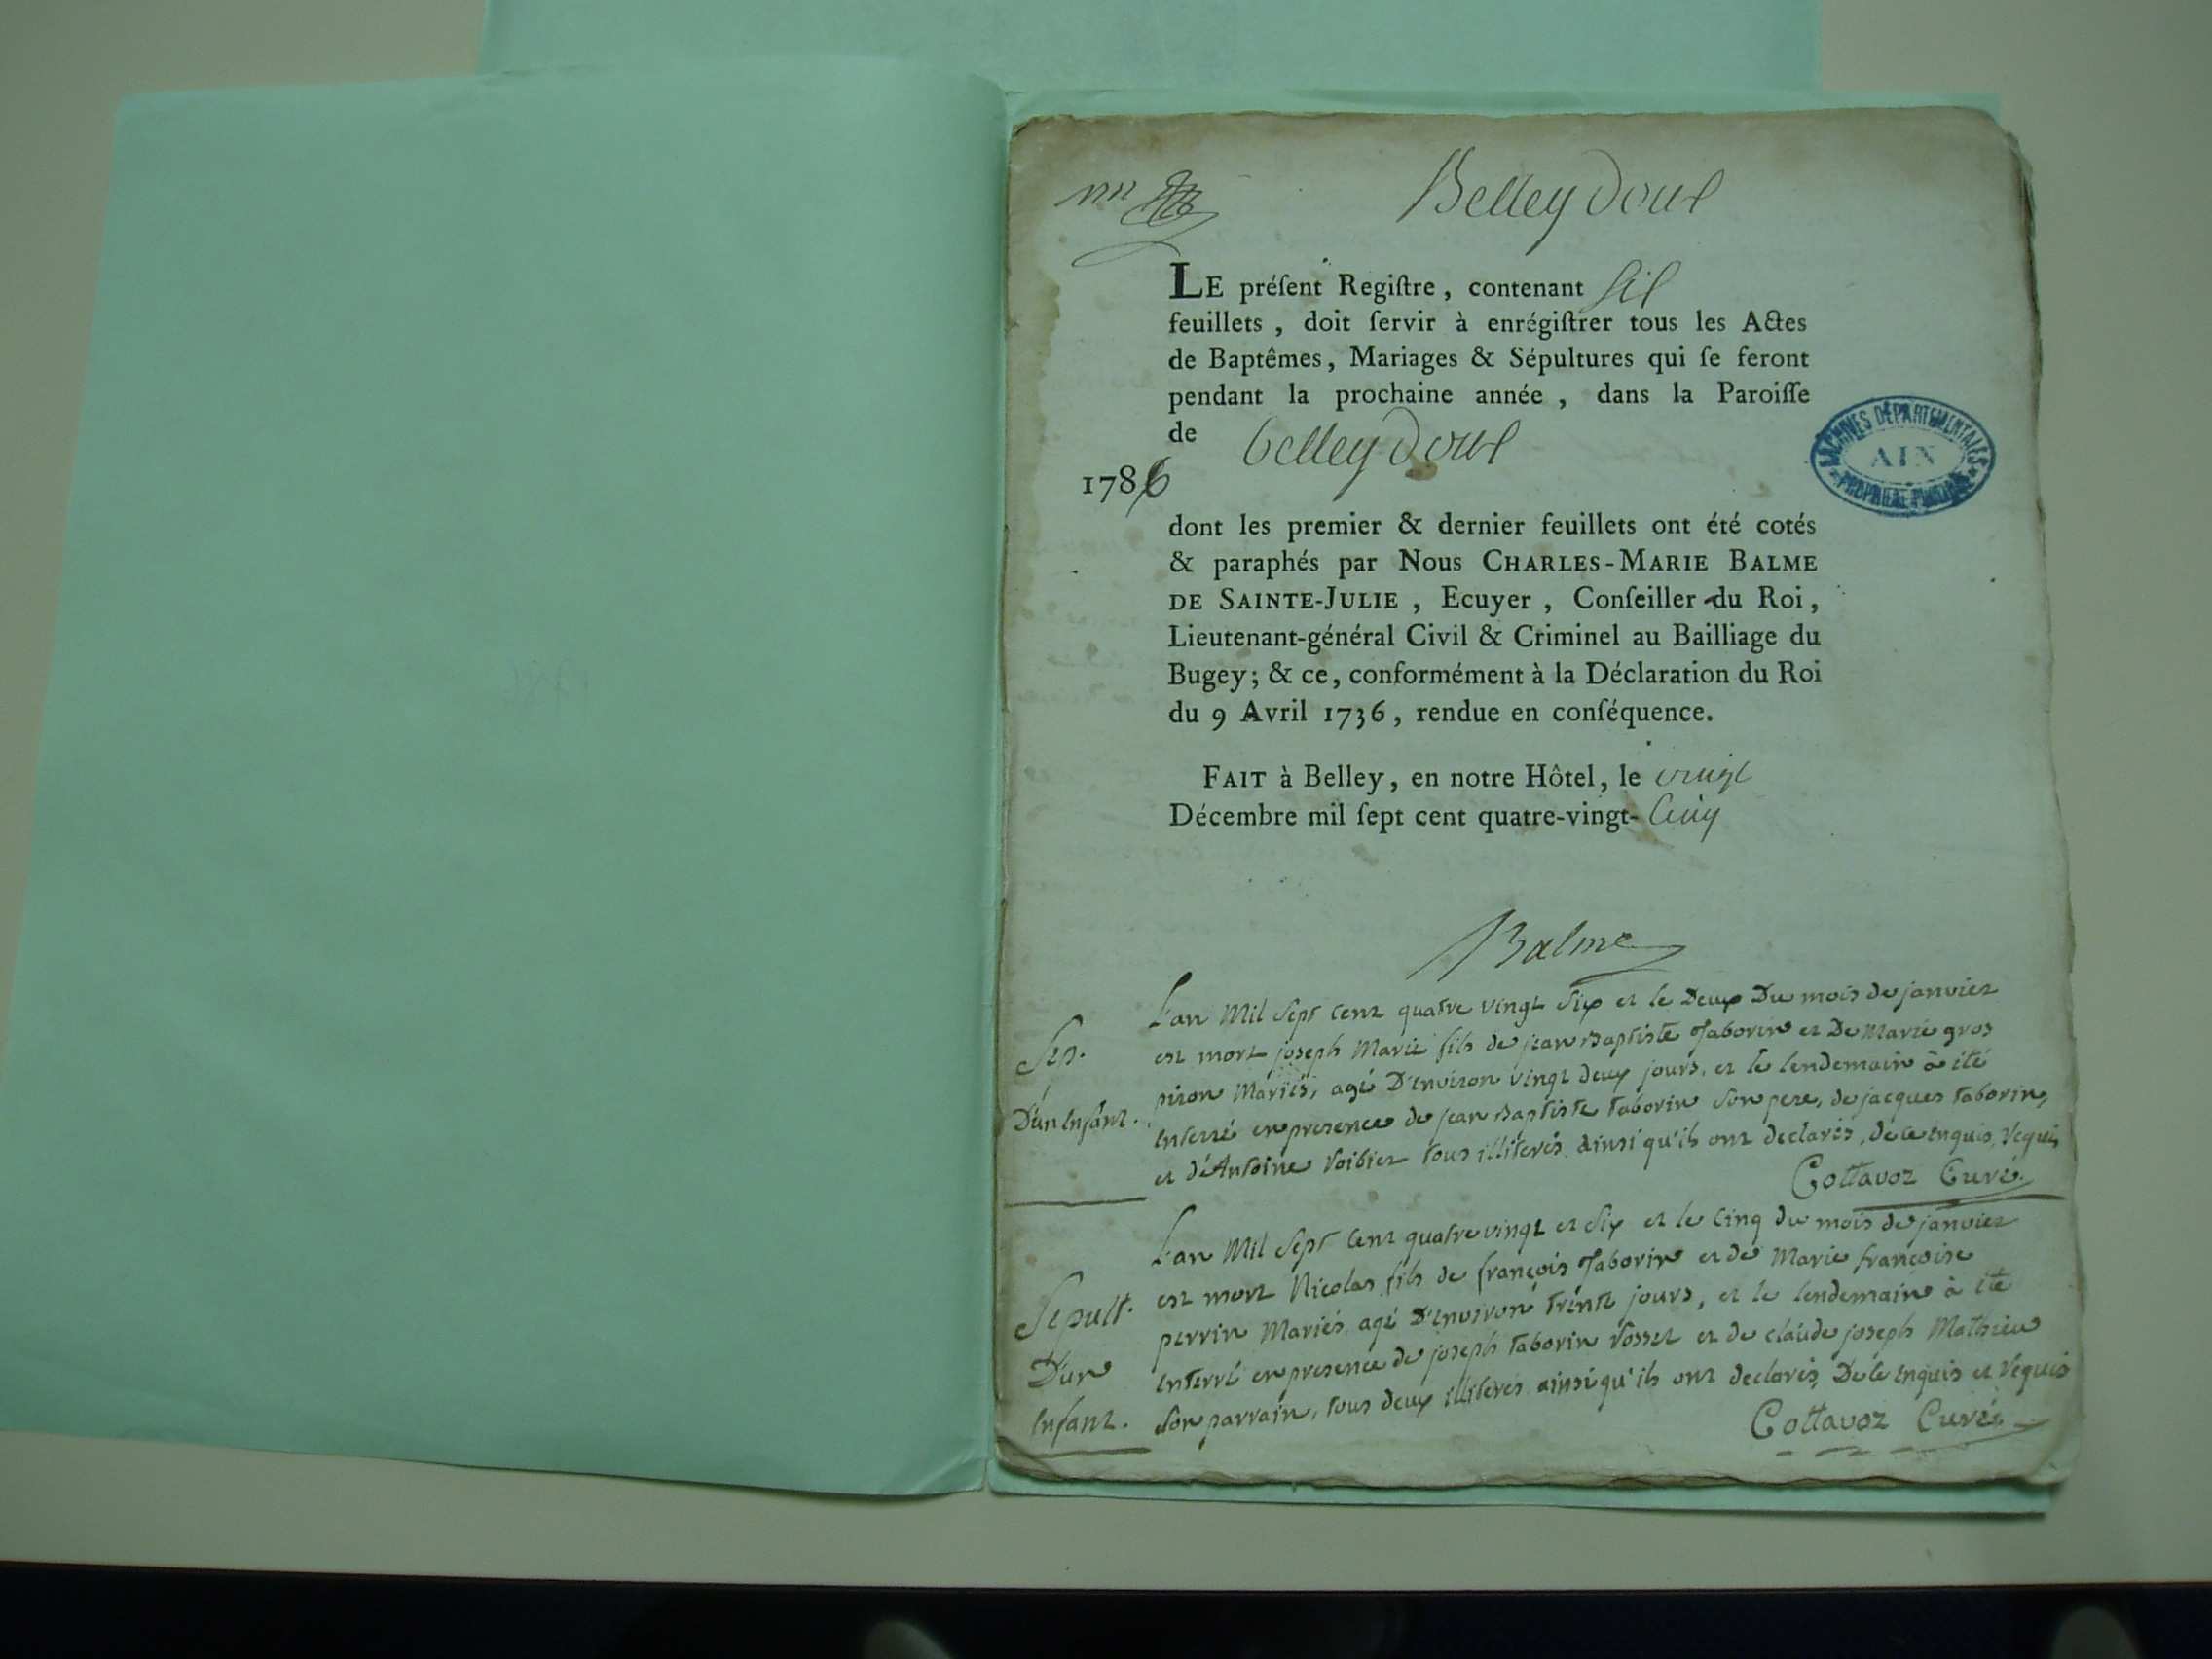 Belleydoux
LE préſent Regiſtre, contenant six
feuillets, doit ſervir à enrégiſtrer tous les Actes
de Baptêmes, Mariages & Sépultures qui ſe feront
pendant la prochaine année, dans la Paroiſſe
de belleydoux
1786
ARCHIVES DÉPARTEMENTALES
AIN
PROPRIÉTÉ PUBLIQUE
dont les premier & dernier feuillets ont été cotés
& paraphés par Nous CHARLES-MARIE BALME
DE SAINTE-JULIE, Ecuyer, Conſeiller du Roi,
Lieutenant-général Civil & Criminel au Bailliage du
Bugey; & ce, conformément à la Déclaration du Roi
du 9 Avril 1736, rendue en conſéquence.
FAIT à Belley, en notre Hôtel, le vingt
Décembre mil ſept cent quatre-vingt-Cinq
Balme
Sep.
D'un Enfant.
L'an Mil Sept cent quatre vingt Six et le Deux Du mois de janvier
est mort joseph Marie fils de jean Baptiste Taborin et De Marie gros
piron Mariés, agé D'environ vingt deux jours, et le lendemain à été
enterré en presence de jean Baptiste taborin Son pere, de jacques taborin,
et d'Antoine Voibier tous illiterés ainsi qu'ils ont declarés, de ce enquis, requis
Cottavoz Curé.
Sepult.
D'un
Enfant.
L'an Mil Sept Cent quatre vingt et Six et le Cinq du mois de janvier
est mort Nicolas fils de françois Taborin et de Marie françoise
perrin Mariés agé D'environ trente jours, et le lendemain à été
enterré en presence de joseph taborin Rosset et de claude joseph Mathieu
Son parrain, tous deux illiterés ainsi qu'ils ont declarés, De ce enquis et requis
Cottavoz Curé